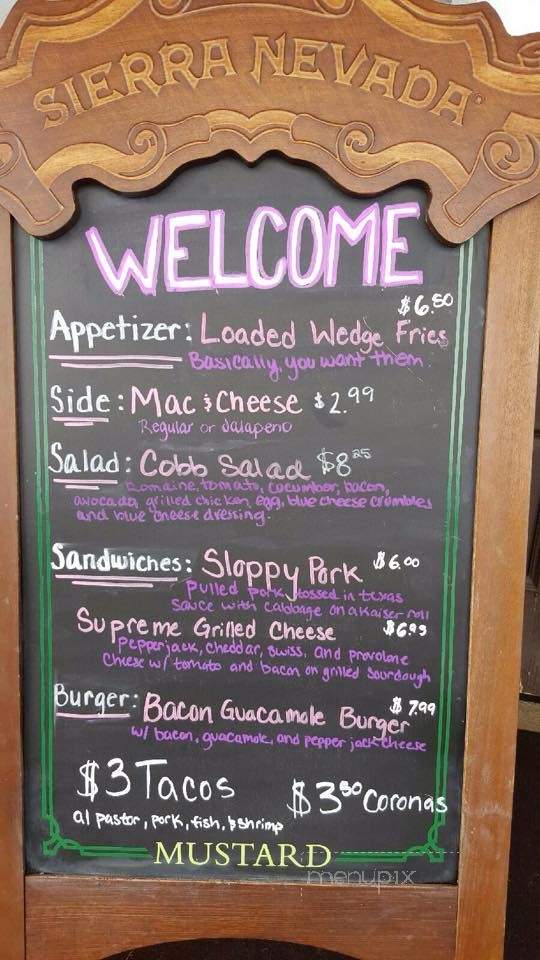 SIERRA NEVADA
WELCOME
$6.50
Appetizer: Loaded Wedge Fries
Basically, you want them.
Side: Mac & Cheese $2.99
Regular or Jalapeno
Salad: Cobb Salad $8.25
Romaine, tomato, cucumber, bacon,
avocado, grilled chicken, egg, blue cheese crumbles
and blue cheese dressing.
Sandwiches: Sloppy Pork $6.00
Pulled pork tossed in texas
sauce with cabbage on a Kaiser roll
Supreme Grilled Cheese $6.95
Pepperjack, cheddar, swiss, and provolone
Cheese w/ tomato and bacon on grilled Sourdough
Burger: Bacon Guacamole Burger $7.99
w/ bacon, guacamole, and pepper jack cheese
$3 Tacos $3.50 Coronas
al pastor, pork, fish, & shrimp
MUSTARD
menupix